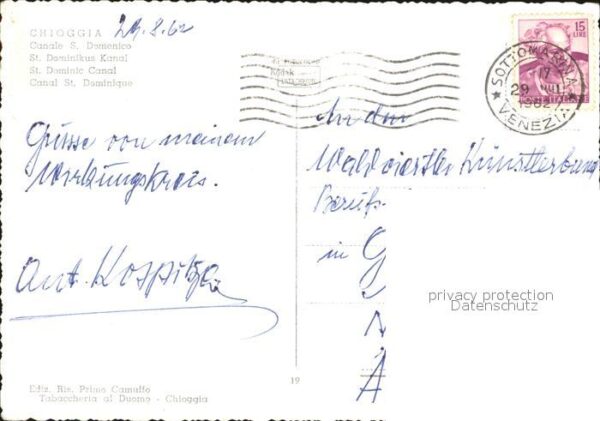 CHIOGGIA
29.8.62
Canale S. Domenico
St. Dominikus Kanal
St. Dominic Canal
Canal St. Dominique
15
LIRE
SOTTOMARINA
17
29
1962
VENEZIA
Grüsse von meinem
Wirkungskreis.
Ant. Kospitza
An den
Waldviertler Künstlerbund
Berufs.
in G
privacy protection
Datenschutz
Ediz. Ris. Primo Camuffo
Tabaccheria al Duomo - Chioggia
19